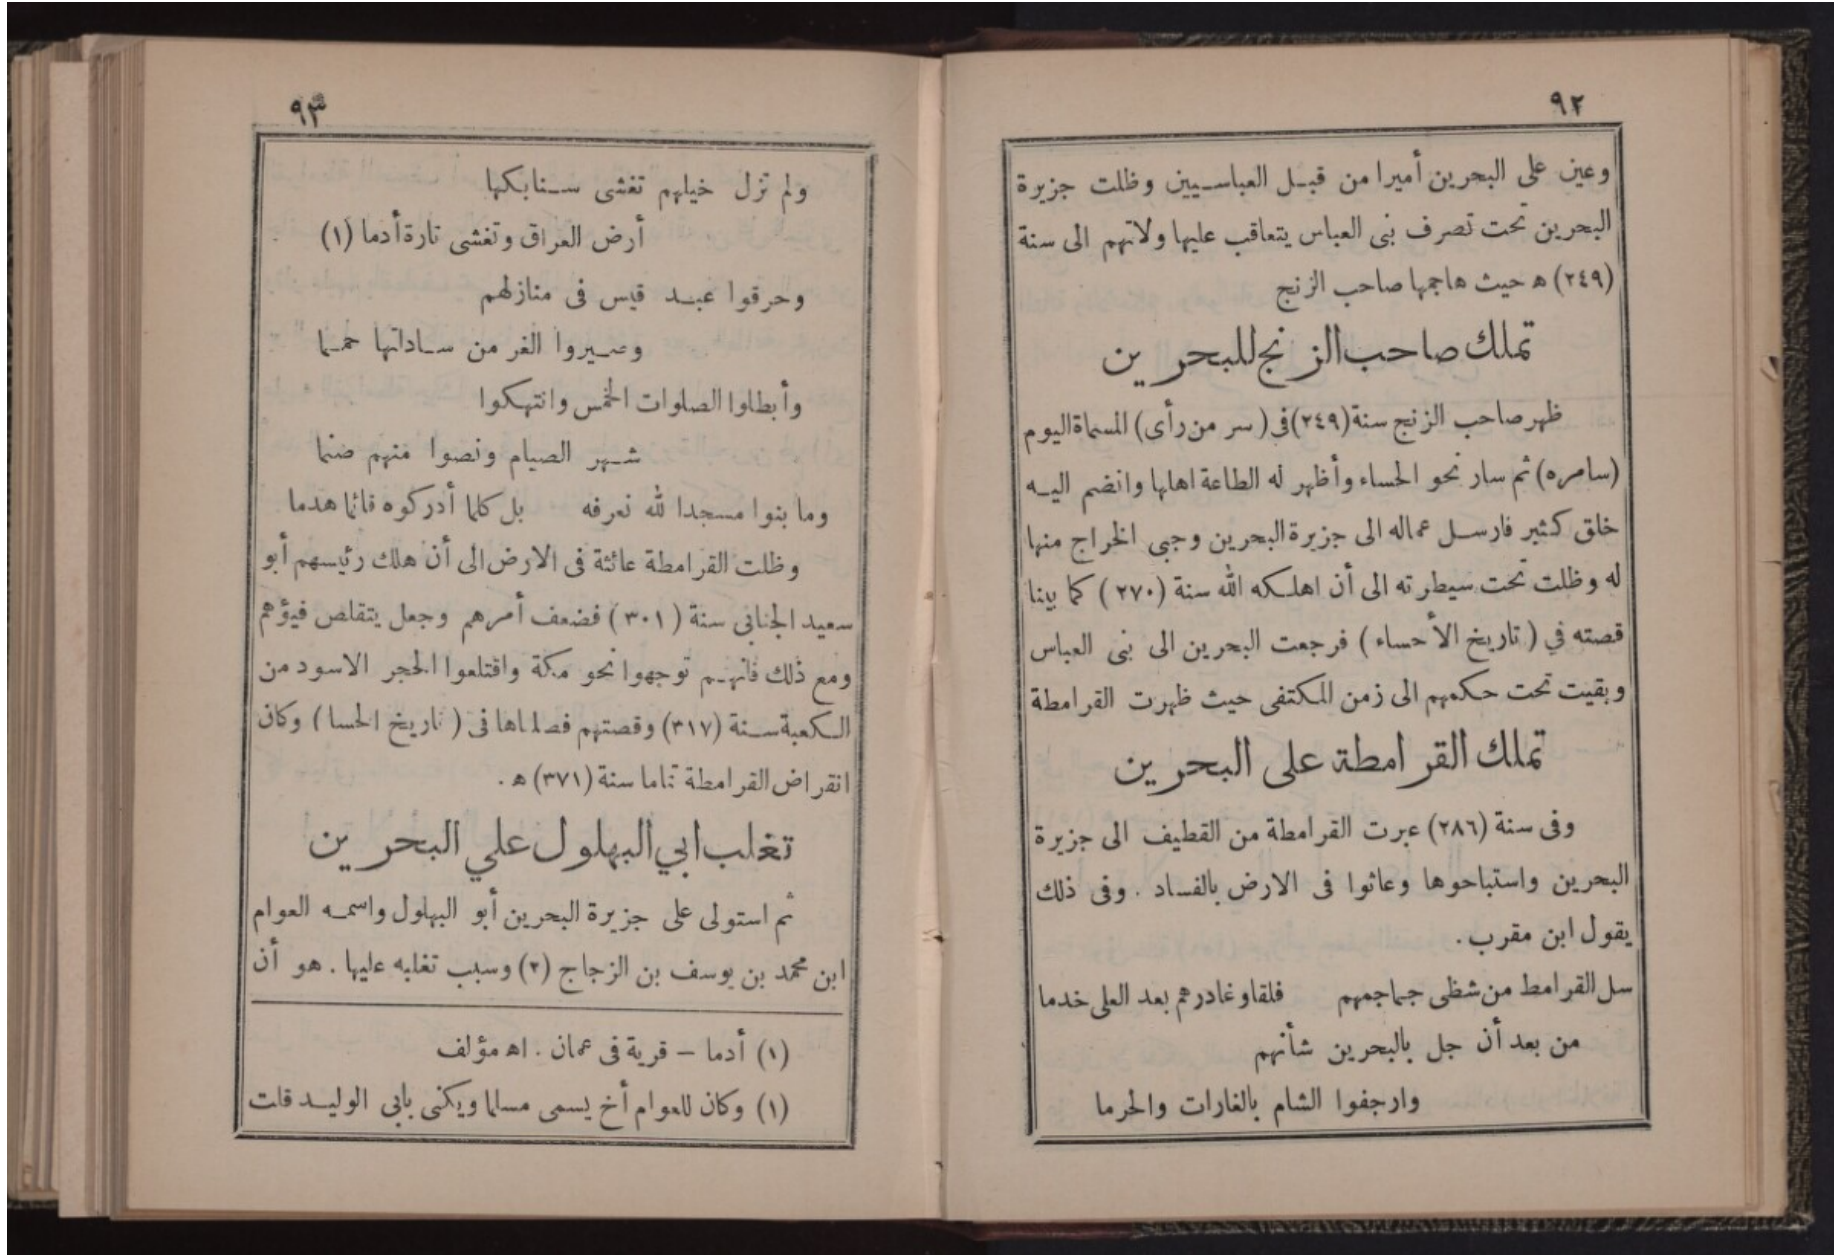 ٩٢
وعين على البحرين أميرا من قبل العباسيين وظلت جزيرة
البحرين تحت تصرف بنى العباس يتعاقب عليها ولاتهم الى سنة
(٢٤٩) ه حيث هاجمها صاحب الزنج
تملك صاحب الزنج للبحرين
ظهر صاحب الزنج سنة (٢٤٩) في (سر من رأى) المسماة اليوم
(سامره) ثم سار نحو الحساء وأظهر له الطاعة اهلها وانضم اليه
خلق كثير فارسل عماله الى جزيرة البحرين وجبى الخراج منها
له وظلت تحت سيطرته الى أن اهلكه الله سنة (٢٧٠) كما بينا
قصته في (تاريخ الأحساء) فرجعت البحرين الى بنى العباس
وبقيت تحت حكمهم الى زمن المكتفى حيث ظهرت القرامطة
تملك القرامطة على البحرين
وفى سنة (٢٨٦) عبرت القرامطة من القطيف الى جزيرة
البحرين واستباحوها وعاثوا فى الارض بالفساد . وفى ذلك
يقول ابن مقرب .
سل القرامط من شظى جماجمهم فلقا وغادرهم بعد العلى خدما
من بعد أن جل بالبحرين شأنهم
وارجفوا الشام بالغارات والحرما
٩٣
ولم تزل خيلهم تغشى سنابكها
أرض العراق وتغشى تارة أدما (١)
وحرقوا عبد قيس فى منازلهم
وصيروا الغر من ساداتها حمما
وأبطلوا الصلوات الخمس وانتهكوا
شهر الصيام ونصوا منهم صنما
وما بنوا مسجدا لله نعرفه بل كلما أدركوه قائما هدما
وظلت القرامطة عائثة فى الارض الى أن هلك رئيسهم أبو
سعيد الجنابى سنة (٣٠١) فضعف أمرهم وجعل يتقلص فيؤهم
ومع ذلك فانهم توجهوا نحو مكة واقتلعوا الحجر الاسود من
الكعبة سنة (٣١٧) وقصتهم فصلناها فى (تاريخ الحسا) وكان
انقراض القرامطة تماما سنة (٣٧١) ه .
تغلب ابي البهلول علي البحرين
ثم استولى على جزيرة البحرين أبو البهلول واسمه العوام
ابن محمد بن يوسف بن الزجاج (٢) وسبب تغلبه عليها . هو أن
(١) أدما – قرية فى عمان . اه مؤلف
(١) وكان للعوام أخ يسمى مسلما ويكنى بابى الوليد قلت